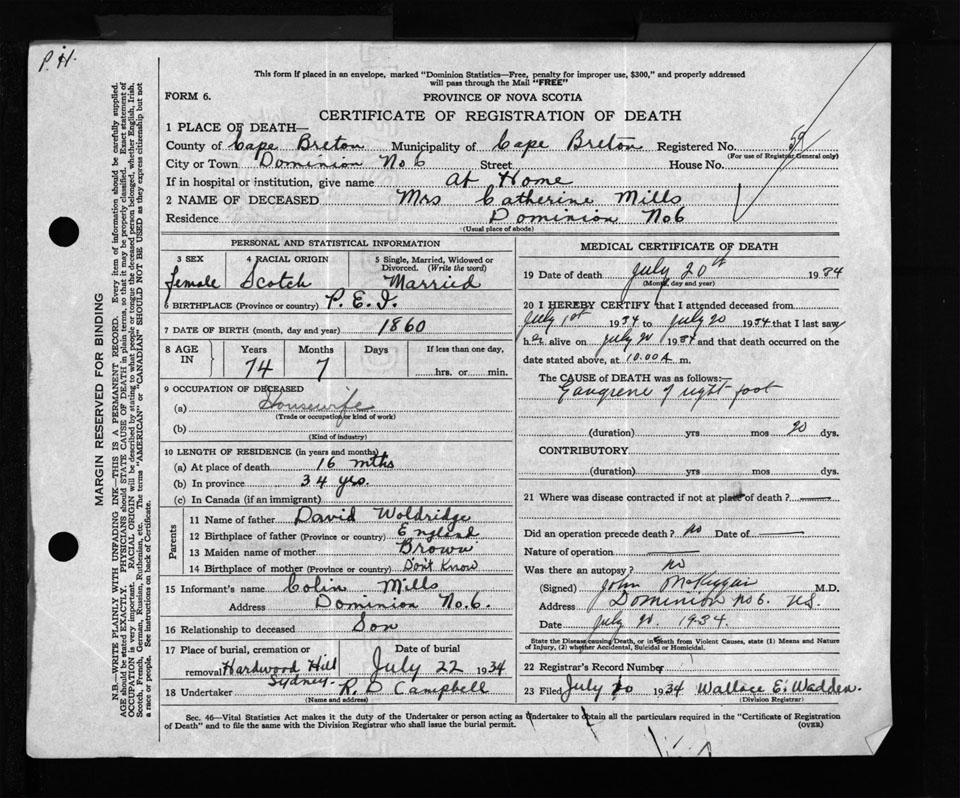 P.H.
This form if placed in an envelope, marked "Dominion Statistics—Free, penalty for improper use, $300," and properly addressed
will pass through the Mail "FREE"
FORM 6.
PROVINCE OF NOVA SCOTIA
CERTIFICATE OF REGISTRATION OF DEATH
1 PLACE OF DEATH—
County of Cape Breton Municipality of Cape Breton Registered No. 59
(For use of Registrar General only)
City or Town Dominion No 6 Street House No.
If in hospital or institution, give name At Home
2 NAME OF DECEASED Mrs Catherine Mills
Residence Dominion No6
(Usual place of abode)
PERSONAL AND STATISTICAL INFORMATION
3 SEX 4 RACIAL ORIGIN 5 Single, Married, Widowed or
Divorced. (Write the word)
female Scotch Married
6 BIRTHPLACE (Province or country) P.E.I.
7 DATE OF BIRTH (month, day and year) 1860
8 AGE IN Years Months Days If less than one day,
74 7 hrs. or min.
9 OCCUPATION OF DECEASED
(a) Housewife
(Trade or occupation or kind of work)
(b)
(Kind of industry)
10 LENGTH OF RESIDENCE (in years and months)
(a) At place of death 16 mths
(b) In province 34 yrs.
(c) In Canada (if an immigrant)
Parents
11 Name of father David Woldridge
12 Birthplace of father (Province or country) England
13 Maiden name of mother Brown
14 Birthplace of mother (Province or country) Don't Know
15 Informant's name Colin Mills
Address Dominion No.6.
16 Relationship to deceased Son
17 Place of burial, cremation or Date of burial
removal Hardwood Hill July 22 1934
Sydney.
18 Undertaker R. D Campbell
(Name and address)
MEDICAL CERTIFICATE OF DEATH
19 Date of death July 20th 1934
(Month, day and year)
20 I HEREBY CERTIFY that I attended deceased from
July 1st 1934 to July 20 1934 that I last saw
her alive on July 20 1934 and that death occurred on the
date stated above, at 10.00 A. m.
The CAUSE of DEATH was as follows:
Gangrene of right foot
(duration) yrs mos 20 dys.
CONTRIBUTORY
(duration) yrs mos dys.
21 Where was disease contracted if not at place of death?
Did an operation precede death? no Date of
Nature of operation
Was there an autopsy? no
(Signed) John McKiggan M.D.
Address Dominion No 6. N.S.
Date July 20. 1934.
State the Disease causing Death, or in death from Violent Causes, state (1) Means and Nature
of Injury, (2) whether Accidental, Suicidal or Homicidal.
22 Registrar's Record Number
23 Filed July 20 1934 Wallace E. Wadden.
(Division Registrar)
Sec. 46—Vital Statistics Act makes it the duty of the Undertaker or person acting as Undertaker to obtain all the particulars required in the "Certificate of Registration
of Death" and to file the same with the Division Registrar who shall issue the burial permit.
(OVER)
MARGIN RESERVED FOR BINDING
N.B.—WRITE PLAINLY WITH UNFADING INK—THIS IS A PERMANENT RECORD. Every item of information should be carefully supplied.
AGE should be stated EXACTLY. PHYSICIANS should STATE CAUSE OF DEATH in plain terms, so that it may be properly classified. Exact statement of
OCCUPATION is very important. RACIAL ORIGIN will be described by stating to what people or tongue the deceased person belonged, whether English, Irish,
Scotch, French, German, Russian, Ruthenian, etc. The terms "AMERICAN" or "CANADIAN" SHOULD NOT BE USED as they express citizenship but not
a race or people. See instructions on back of Certificate.